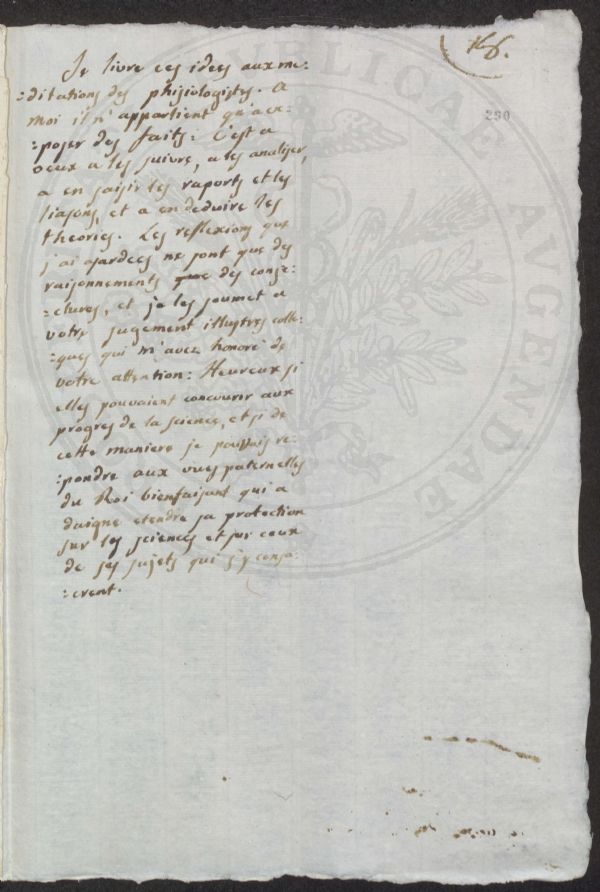 166.
290
Je livre ces idees aux me:
:ditations des phisiologistes. A
moi il n'appartient qu'a ex:
:poser des faits: C'est a
oeux a les suivre, a les analiser,
a en saisir les raports et les
liasons, et a en deduire les
theories. Les reflexions que
j'ai asardées ne sont que des
raisonnements que des conge:
:ctures, et je les soumet a
votre jugement illustres colle:
:gues qui m'avez honoré de
votre attention: Heureux si
elles pouvaient concourir aux
progres de la science, et si de
cette maniere je pouvais re:
:pondre aux vues paternelles
du Roi bienfaisant qui a
daigné etendre sa protection
sur les sciences et sur ceux
de ses sujets qui s'y consa:
:crent.
PUBLICAE
AUGENDAE